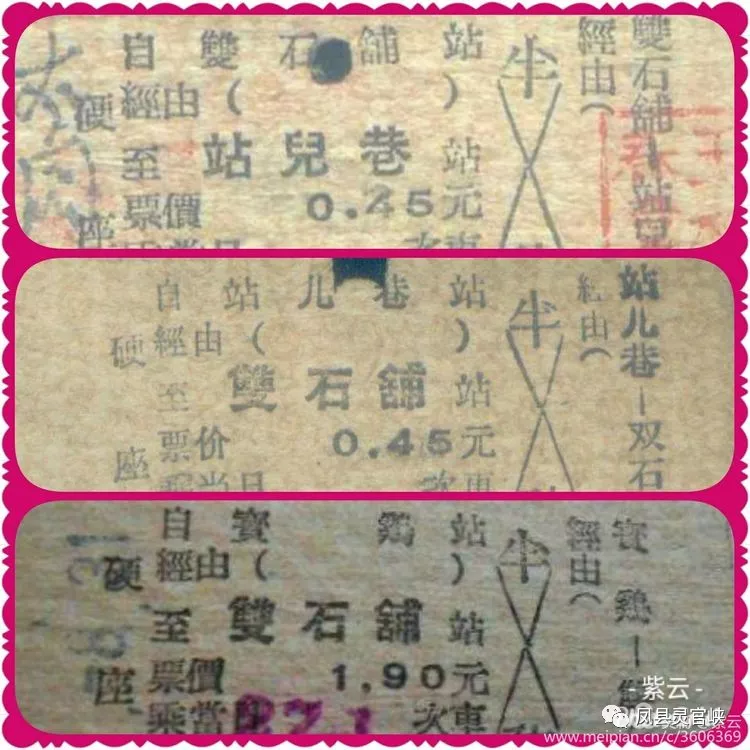 自雙石舖站
經由( )
硬座
至站兒巷站
票價 0.45元
半
雙石舖—站兒
經由(
自站儿巷站
經由( )
硬座
至雙石舖站
票价 0.45元
半
站儿巷—双石
經由(
自寳鷄站
經由( )
硬座
至雙石舖站
票價 1.90元
乘當日 次車
半
寳鷄—
經由(
-紫云-
凤县灵官峡
www.meipian.cn/c/3606369